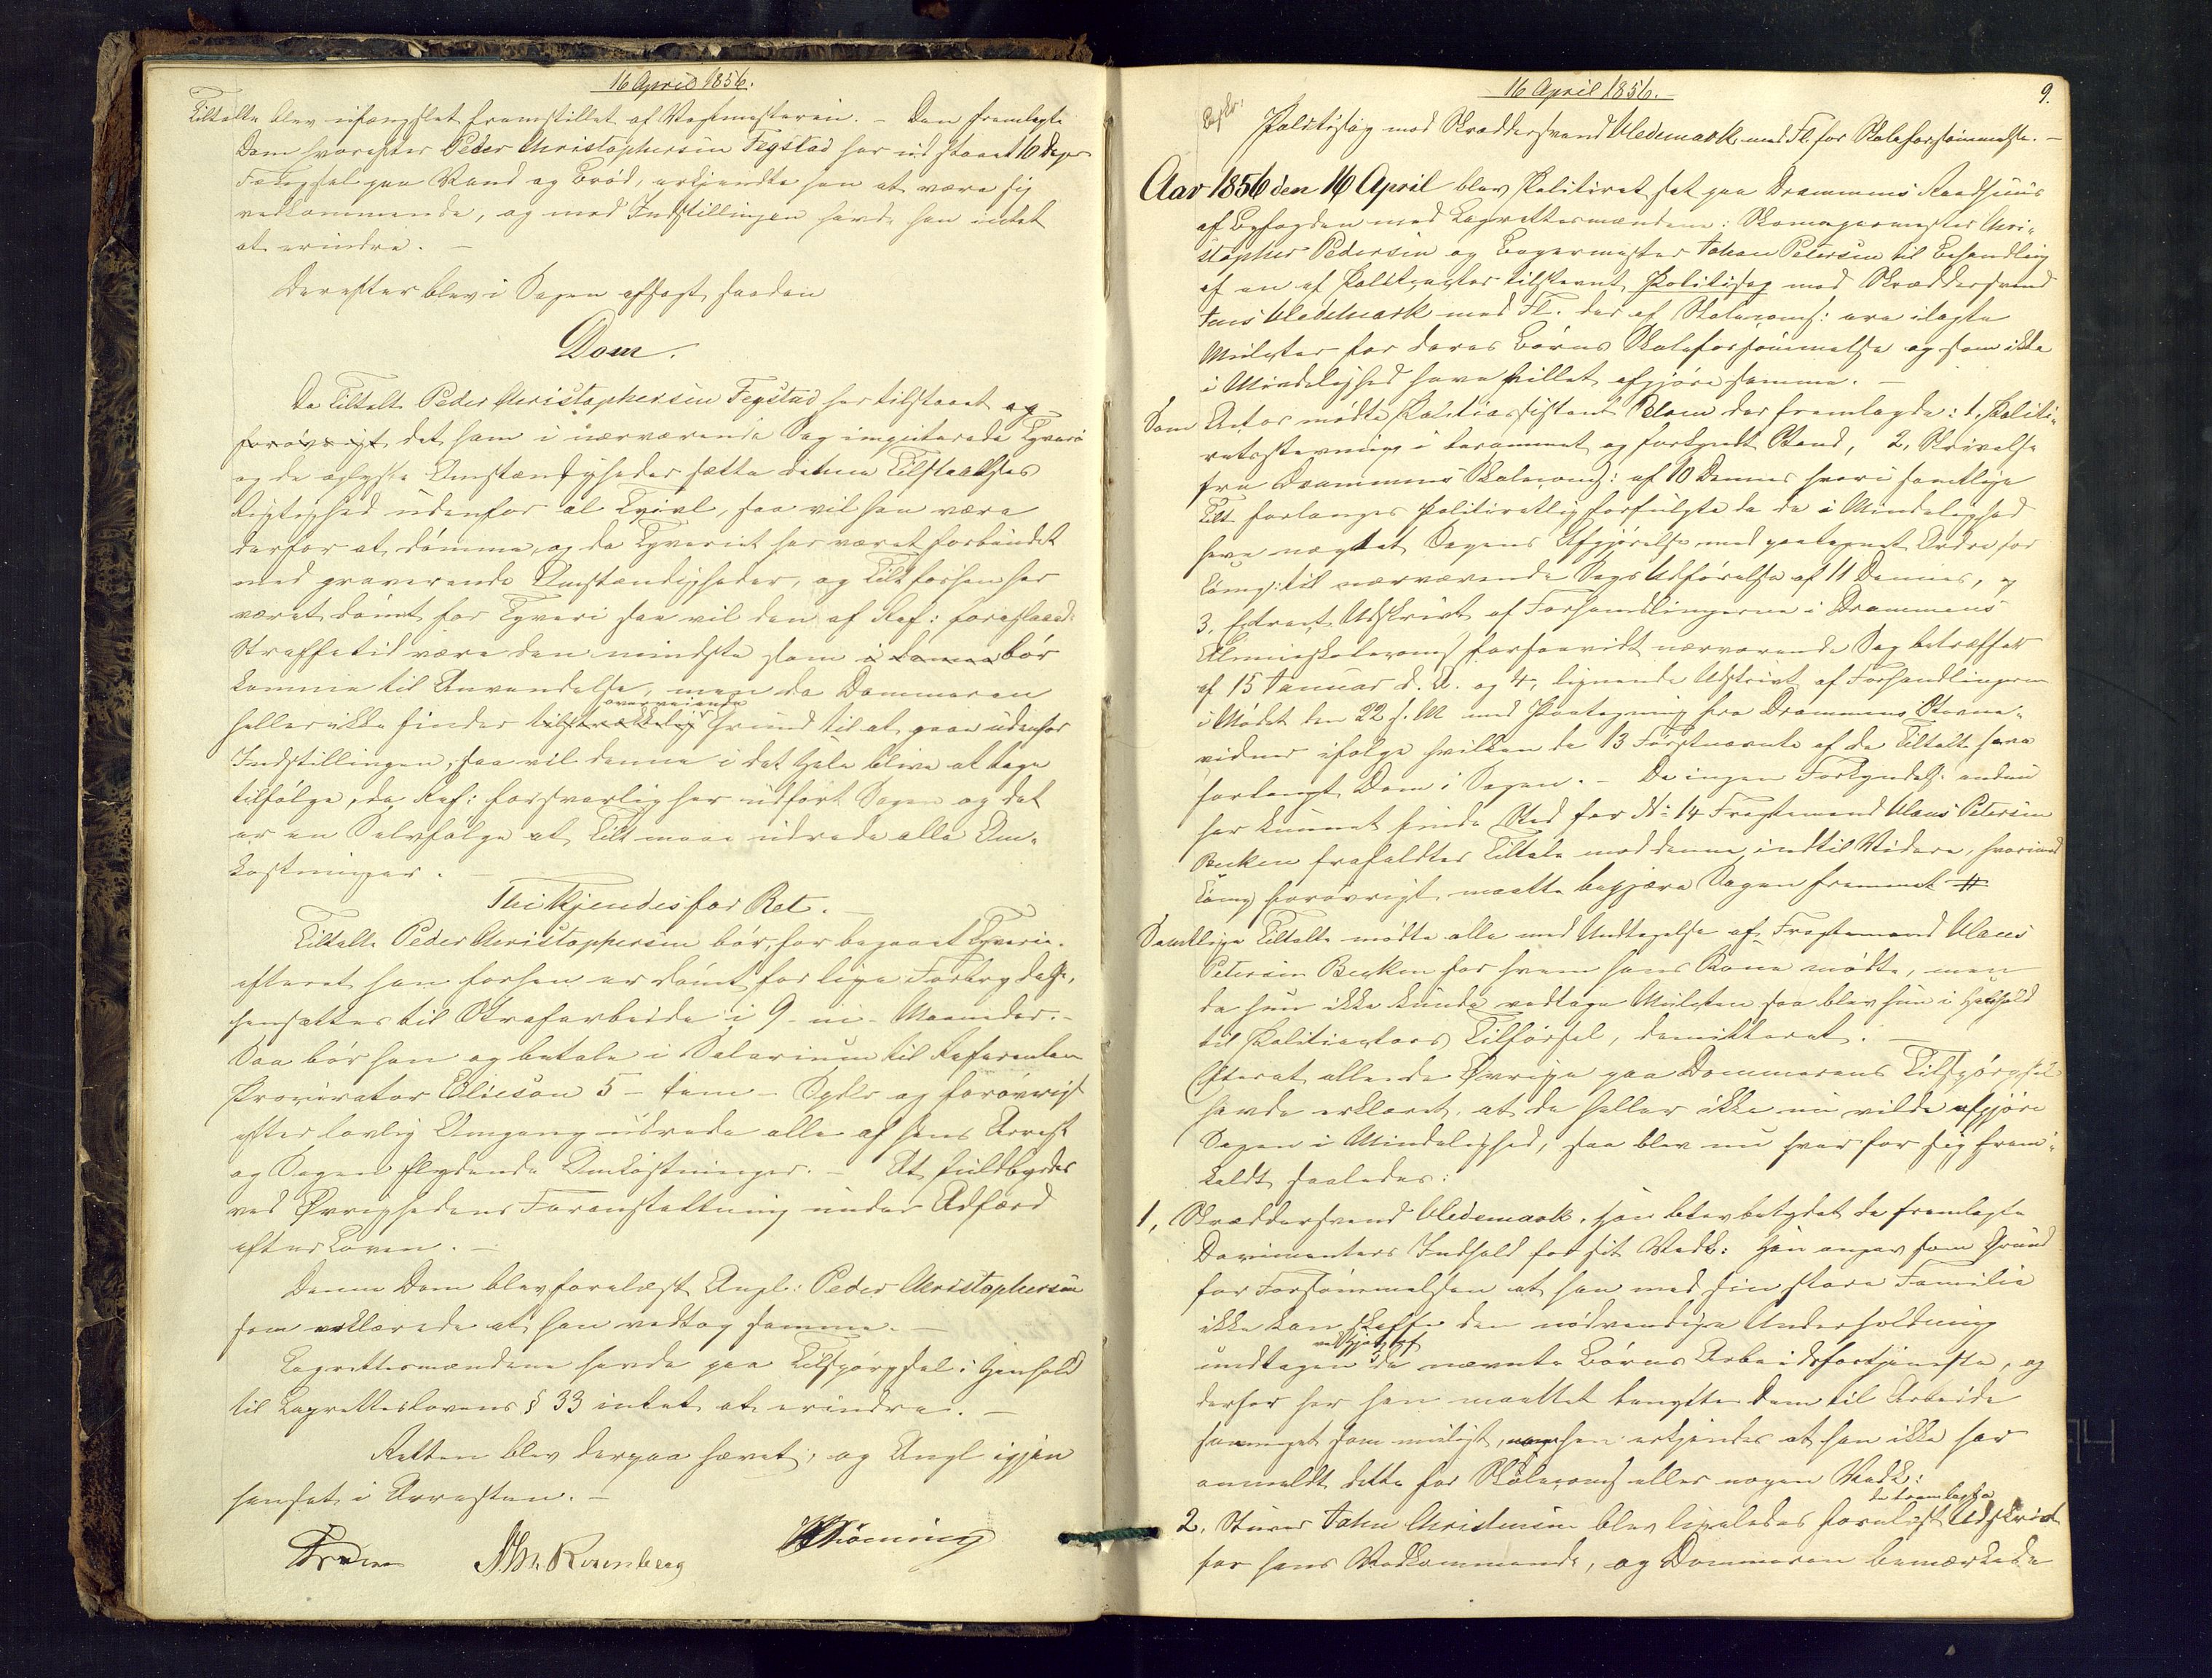 16 April 1856.
Tiltalte blev ufængslet fremstillet af Vagtmesteren. – Den fremlagte
Dom hvorefter Peder Christophersen Fegstad har udstaaet 10 Dages
Fængsel paa Vand og Brød, erkjendte han at være sig
vedkommende, og mod Indstillingen havde han intet
at erindre. –
Derefter blev i Sagen afsagt saadan
Dom.
Da Tiltalte Peder Christophersen Fegstad har tilstaaet og
forøvrigt det ham i nærværende Sag imputerede Tyveri
og de oplyste Omstændigheder sætte denne Tilstaaelses
Rigtighed udenfor al Tvivl, saa vil han være
derfor at dømme, og da Tyveriet har været forbundet
med graverende Omstændigheder, og Tilt forhen har
været dømt for Tyveri saa vil den af Ref: foreslaaede
Straffetid være den mindste som i denne bør
komme til Anvendelse, men da Dommeren
overveiende
heller ikke finder tilstrækkelig Grund til at gaae udenfor
Indstillingen, saa vil denne i det Hele blive at tage
tilfølge, da Ref: forsvarlig har udført Sagen og det
er en Selvfølge at Tilt maae udrede alle Om-
kostninger. –
Thi Kjendes for Ret. –
Tiltalte Peder Christophersen bør, for begaaet Tyveri
efteret han forhen er dømt for lige Forbrydelse,
hensættes til Strafarbeide i 9 – ni – Maaneder. –
Saa bør han og betale i Salarium til Referenten
Procurator Ellieson 5 – fem – Spdlr og forøvrigt
efter lovlig Omgang udrede alle af hans Arrest
og Sagen flydende Omkostninger. – At fuldbyrdes
ved Øvrighedens Foranstaltning under Adfærd
efter Loven. –
Denne Dom blev forelæst Angl: Peder Christophersen
som erklærede at han vedtog samme. –
Lagrettesmændene havde paa Tilspørgsel i Henhold
til Lagretteslovens § 33 intet at erindre. –
Retten blev derpaa hævet, og Angl igjen
hensat i Arresten. –
Rosenberg
16 April 1856. –
9.
Politisag mod Skræddersvend Cledsmark med Fl. for Skoleforsømmelse. –
Aar 1856 den 16 April blev Politiret sat paa Drammens Raadhuus
af Byfogden med Lagrettesmændene: Skomagermester Chri-
stopher Pedersen og Bagermester Johan Petersen til Behandling
af en af Politiactor tilstevnt Politisag mod Skræddersvend
Jens Cledsmark med Fl. der af Skolecomms: ere ilagte
Mulcter for deres Børns Skoleforsømmelse og som ikke
i Mindelighed have villet afgjøre samme. –
Som Actor mødte Politiassistent Blom der fremlagde: 1, Politi-
retsstevning i beramment og forkyndt Stand, 2, Skrivelse
fra Drammens Skolecomms: af 10 Dennes hvori samtlige
Tilt forlanges politiretlig forfulgte da de i Mindelighed
have nægtet Sagens Afgjørelse med paategnet Ordre for
Comp: til nærværende Sags Udførelse af 11 Dennes, og
3, Extract Udskrivt af Forhandlingerne i Drammens
Almueskolecomms forsaavidt nærværende Sag betræffer
af 15 Januar d. A. og 4, lignende Udskrivt af Forhandlingerne
i Mødet den 22 f. M med Paategning fra Drammens Stevne-
vidner ifølge hvilken de 13 Førstnævnte af de Tiltalte have
forlangt Dom i Sagen. – Da ingen Forkyndelse endnu
har kunnet finde Sted for No 14 Fragtemand Claus Petersen
Becken frafaldtes Tiltale mod denne indtil Videre, hvorimod
Comp forøvrigt maatte begjære Sagen fremmet #
Samtlige Tiltalte mødte alle med Undtagelse af Fragtemand Claus
Petersen Becken for hvem hans Kone mødte, men
da hun ikke kunde vedtage Mulcten saa blev hun i Henhold
til Politiactors Tilførsel, demitteret. –
Efterat alle de Øvrige paa Dommerens Tilspørgsel
havde erklæret, at de heller ikke nu vilde afgjøre
Sagen i Mindelighed, saa blev nu hver for sig frem-
kaldt saaledes:
1, Skræddersvend Cledsmark. Han blev betydet de fremlagte
Documenters Indhold for sit Vedk: Han angav som Grund
for Forsømmelsen at han med sin store Familie
ikke kan skaffe den nødvendige Underholdning
ved Hjælp af
undtagen de nævnte Børns Arbeidsfortjeneste, og
derfor har han maattet benytte dem til Arbeide
saameget som muligt, han erkjender at han ikke har
anmeldt dette for Skolecomms eller nogen Vedk:
de fremlagte
2, Stuer John Christensen blev ligeledes forelæst Udskrivt
for hans Vedkommende, og Dommeren bemærkede